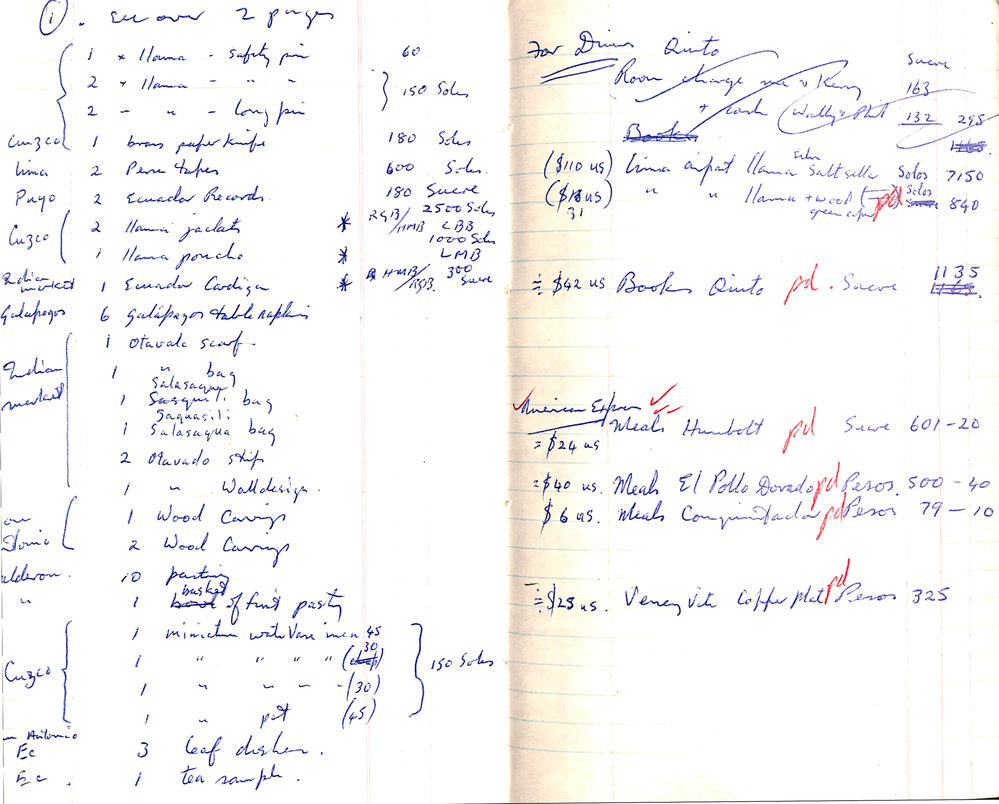 ① . See over 2 pages
1 x llama - safety pin 60
2 x llama - " "
150 Soles
2 - " " - long pin
Cuzco 1 brass paper knife 180 Soles
Lima 2 Peru tapes 600 Soles.
Puyo 2 Ecuador Records. 180 Sucre
Cuzco 2 llama jackets * RGB/HMB 2500 Soles LBB
1 llama poncho * 1000 Soles LMB
Indian market 1 Ecuador Cardigan * HMB/RGB. 300 Sucre
Galapagos 6 galapagos table napkins
1 Otavalo scarf.
Indian market 1 " bag
Salasaqua
1 Sasquili bag
Saquasili
1 Salasaqua bag
2 Otavado strip
1 " Wall design.
1 Wood Carvings
2 Wood Carvings
alderon. 10 pastry
basket
" 1 bowl of fruit pastry
1 miniature with Vase inca 45
Cuzco 1 " " " " (30)
150 Soles
1 " " " - (30)
1 " pot (45)
Antonio
Ec 3 leaf dishes.
Ec . 1 tea sample.
For Diners Quito
Sucre
Room charge me & Kerry 163
+ cash (Wally & Phil 132 295
Books 1165
($110 us) Lima airport llama silver Saltsella Soles 7150
($13 us) " " llama + wood pd Soles 840
31
≑ $42 us Books Quito pd . Sucre 1135
1165.
✓ American Express ✓
Meals Humbolt pd Sucre 601-20
= $24 us
= $40 us. Meals El Pollo Dorado pd Pesos. 500-40
$6 us. Meals Conquistador pd Pesos 79-10
≑ $25 us. Copper plat pd Pesos 325